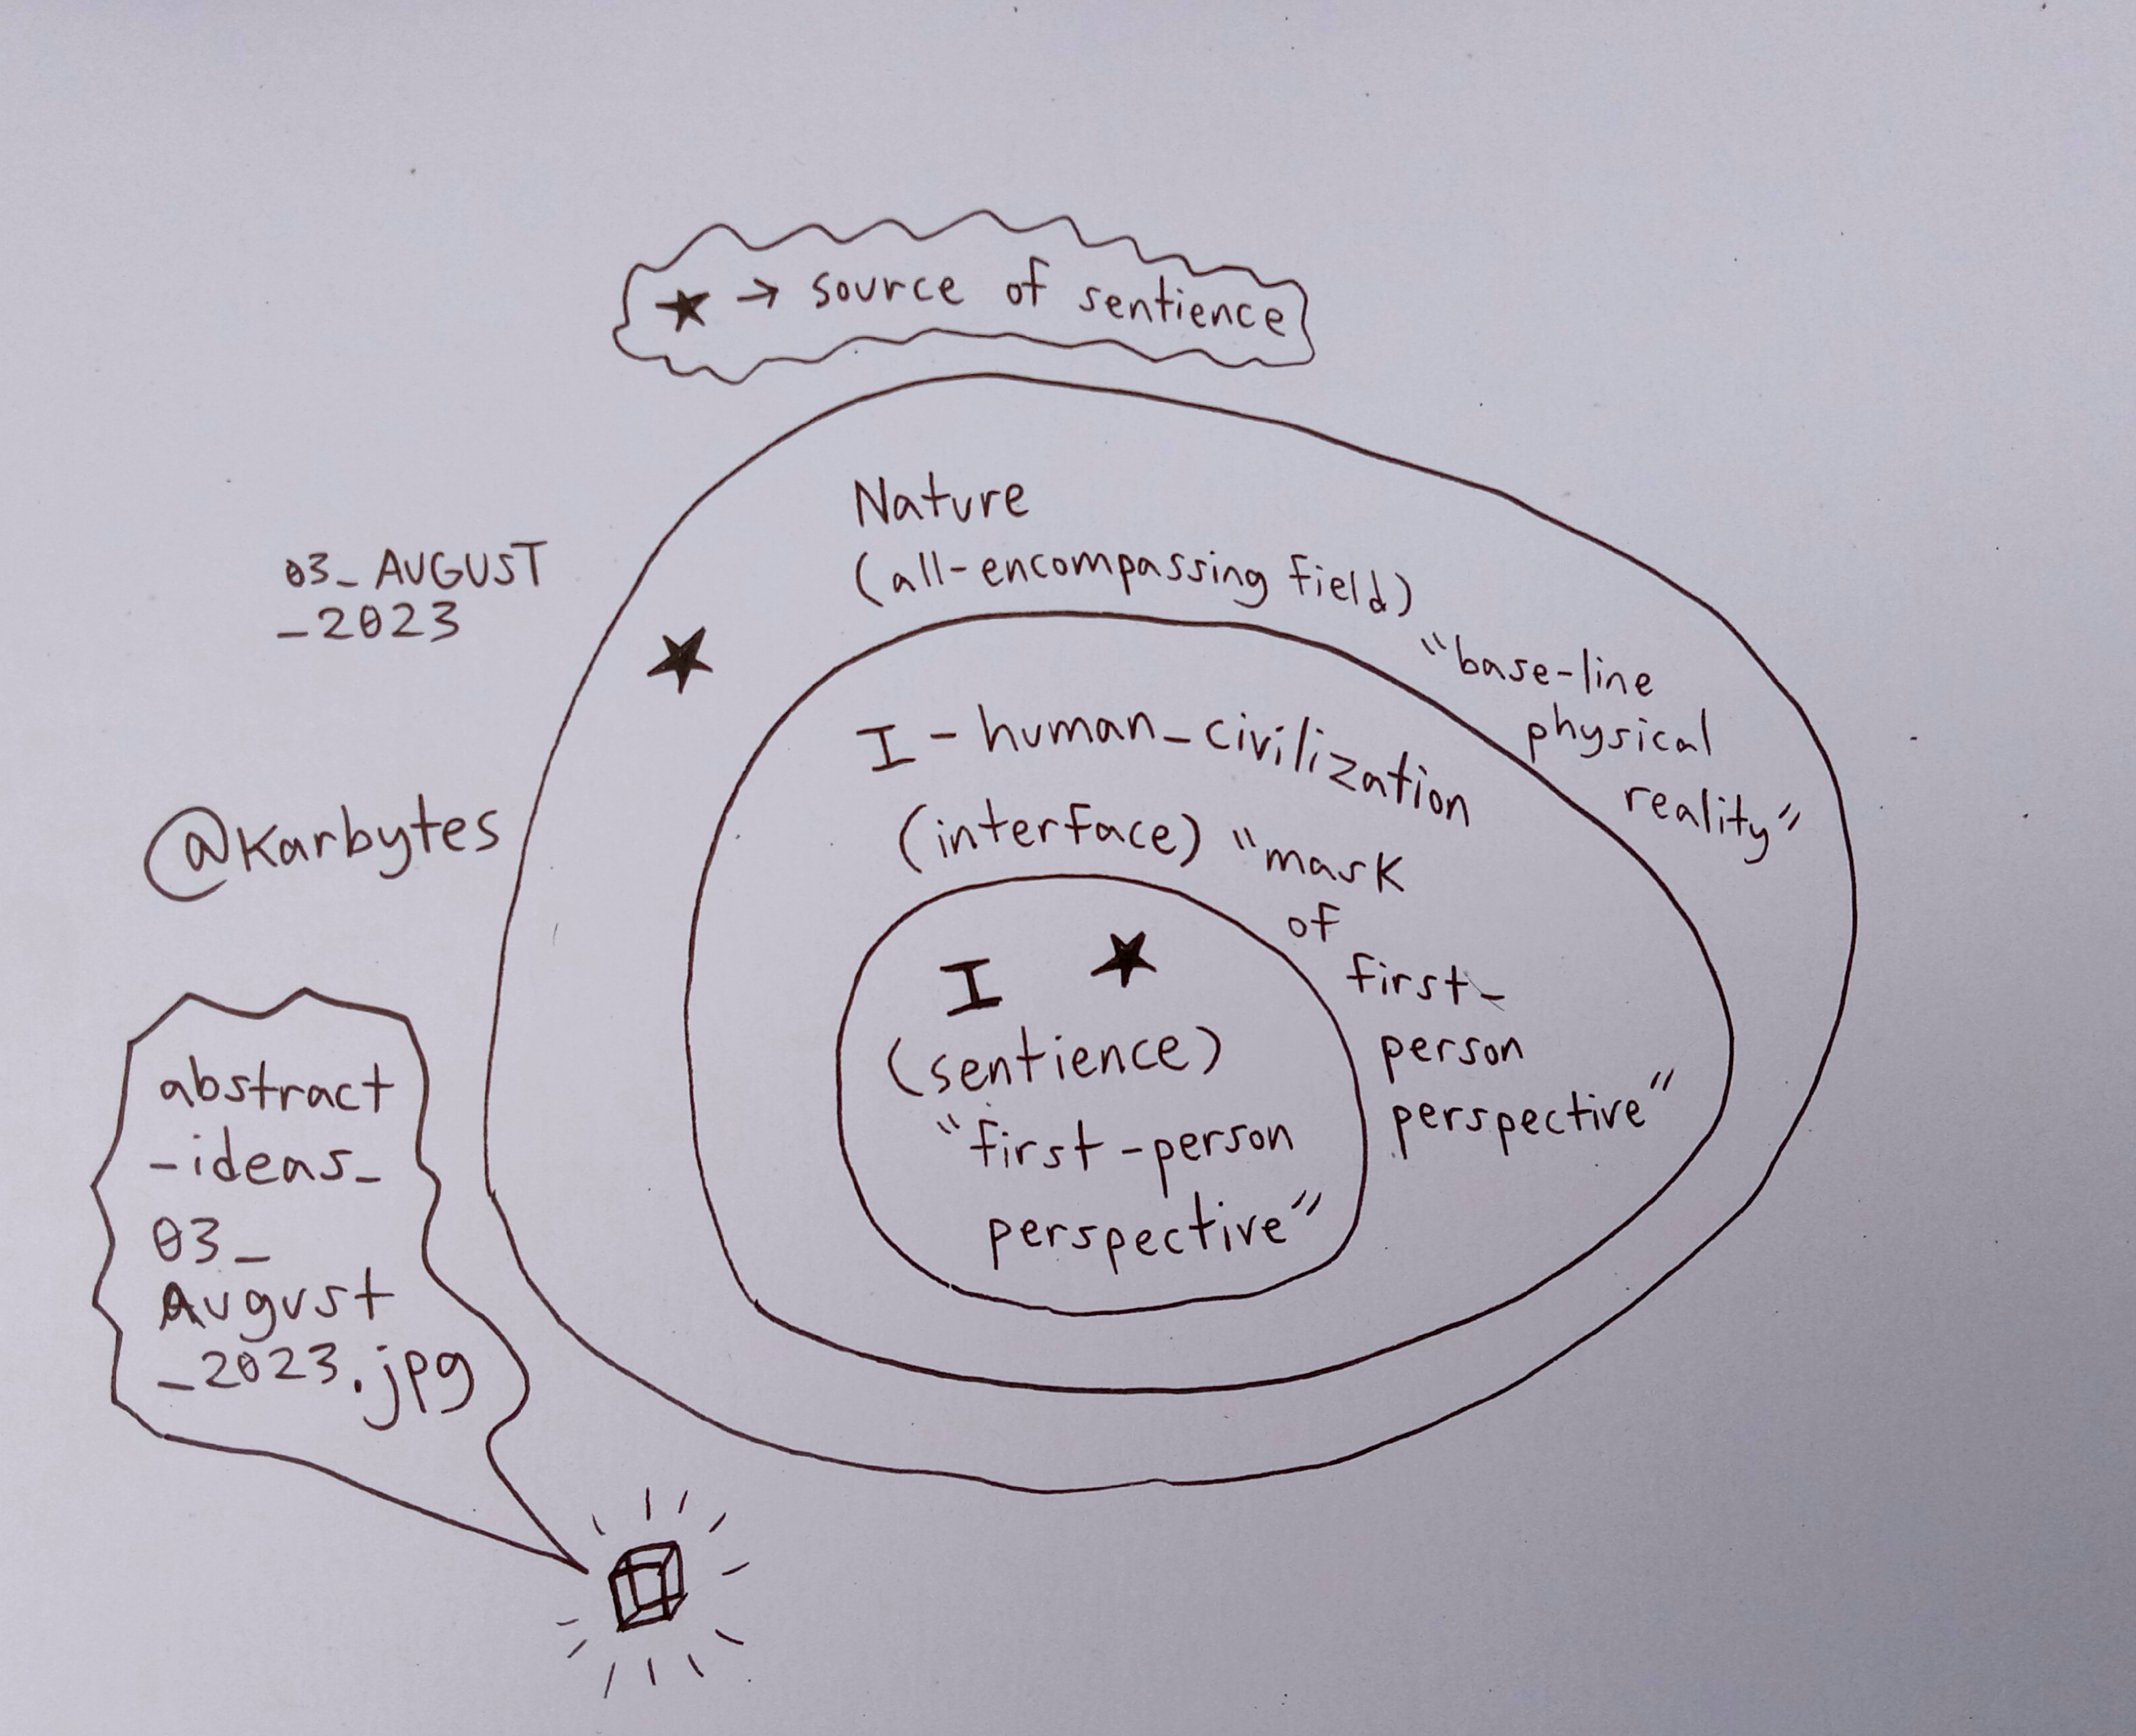 ★ → source of sentience
Nature
(all-encompassing field)
"base-line
physical
reality"
03_AUGUST
_2023
★
I-human_civilization
(interface) "mask
of
first-
person
perspective"
@Karbytes
I ★
(sentience)
"first-person
perspective"
abstract
-ideas_
03_
August
_2023.jpg